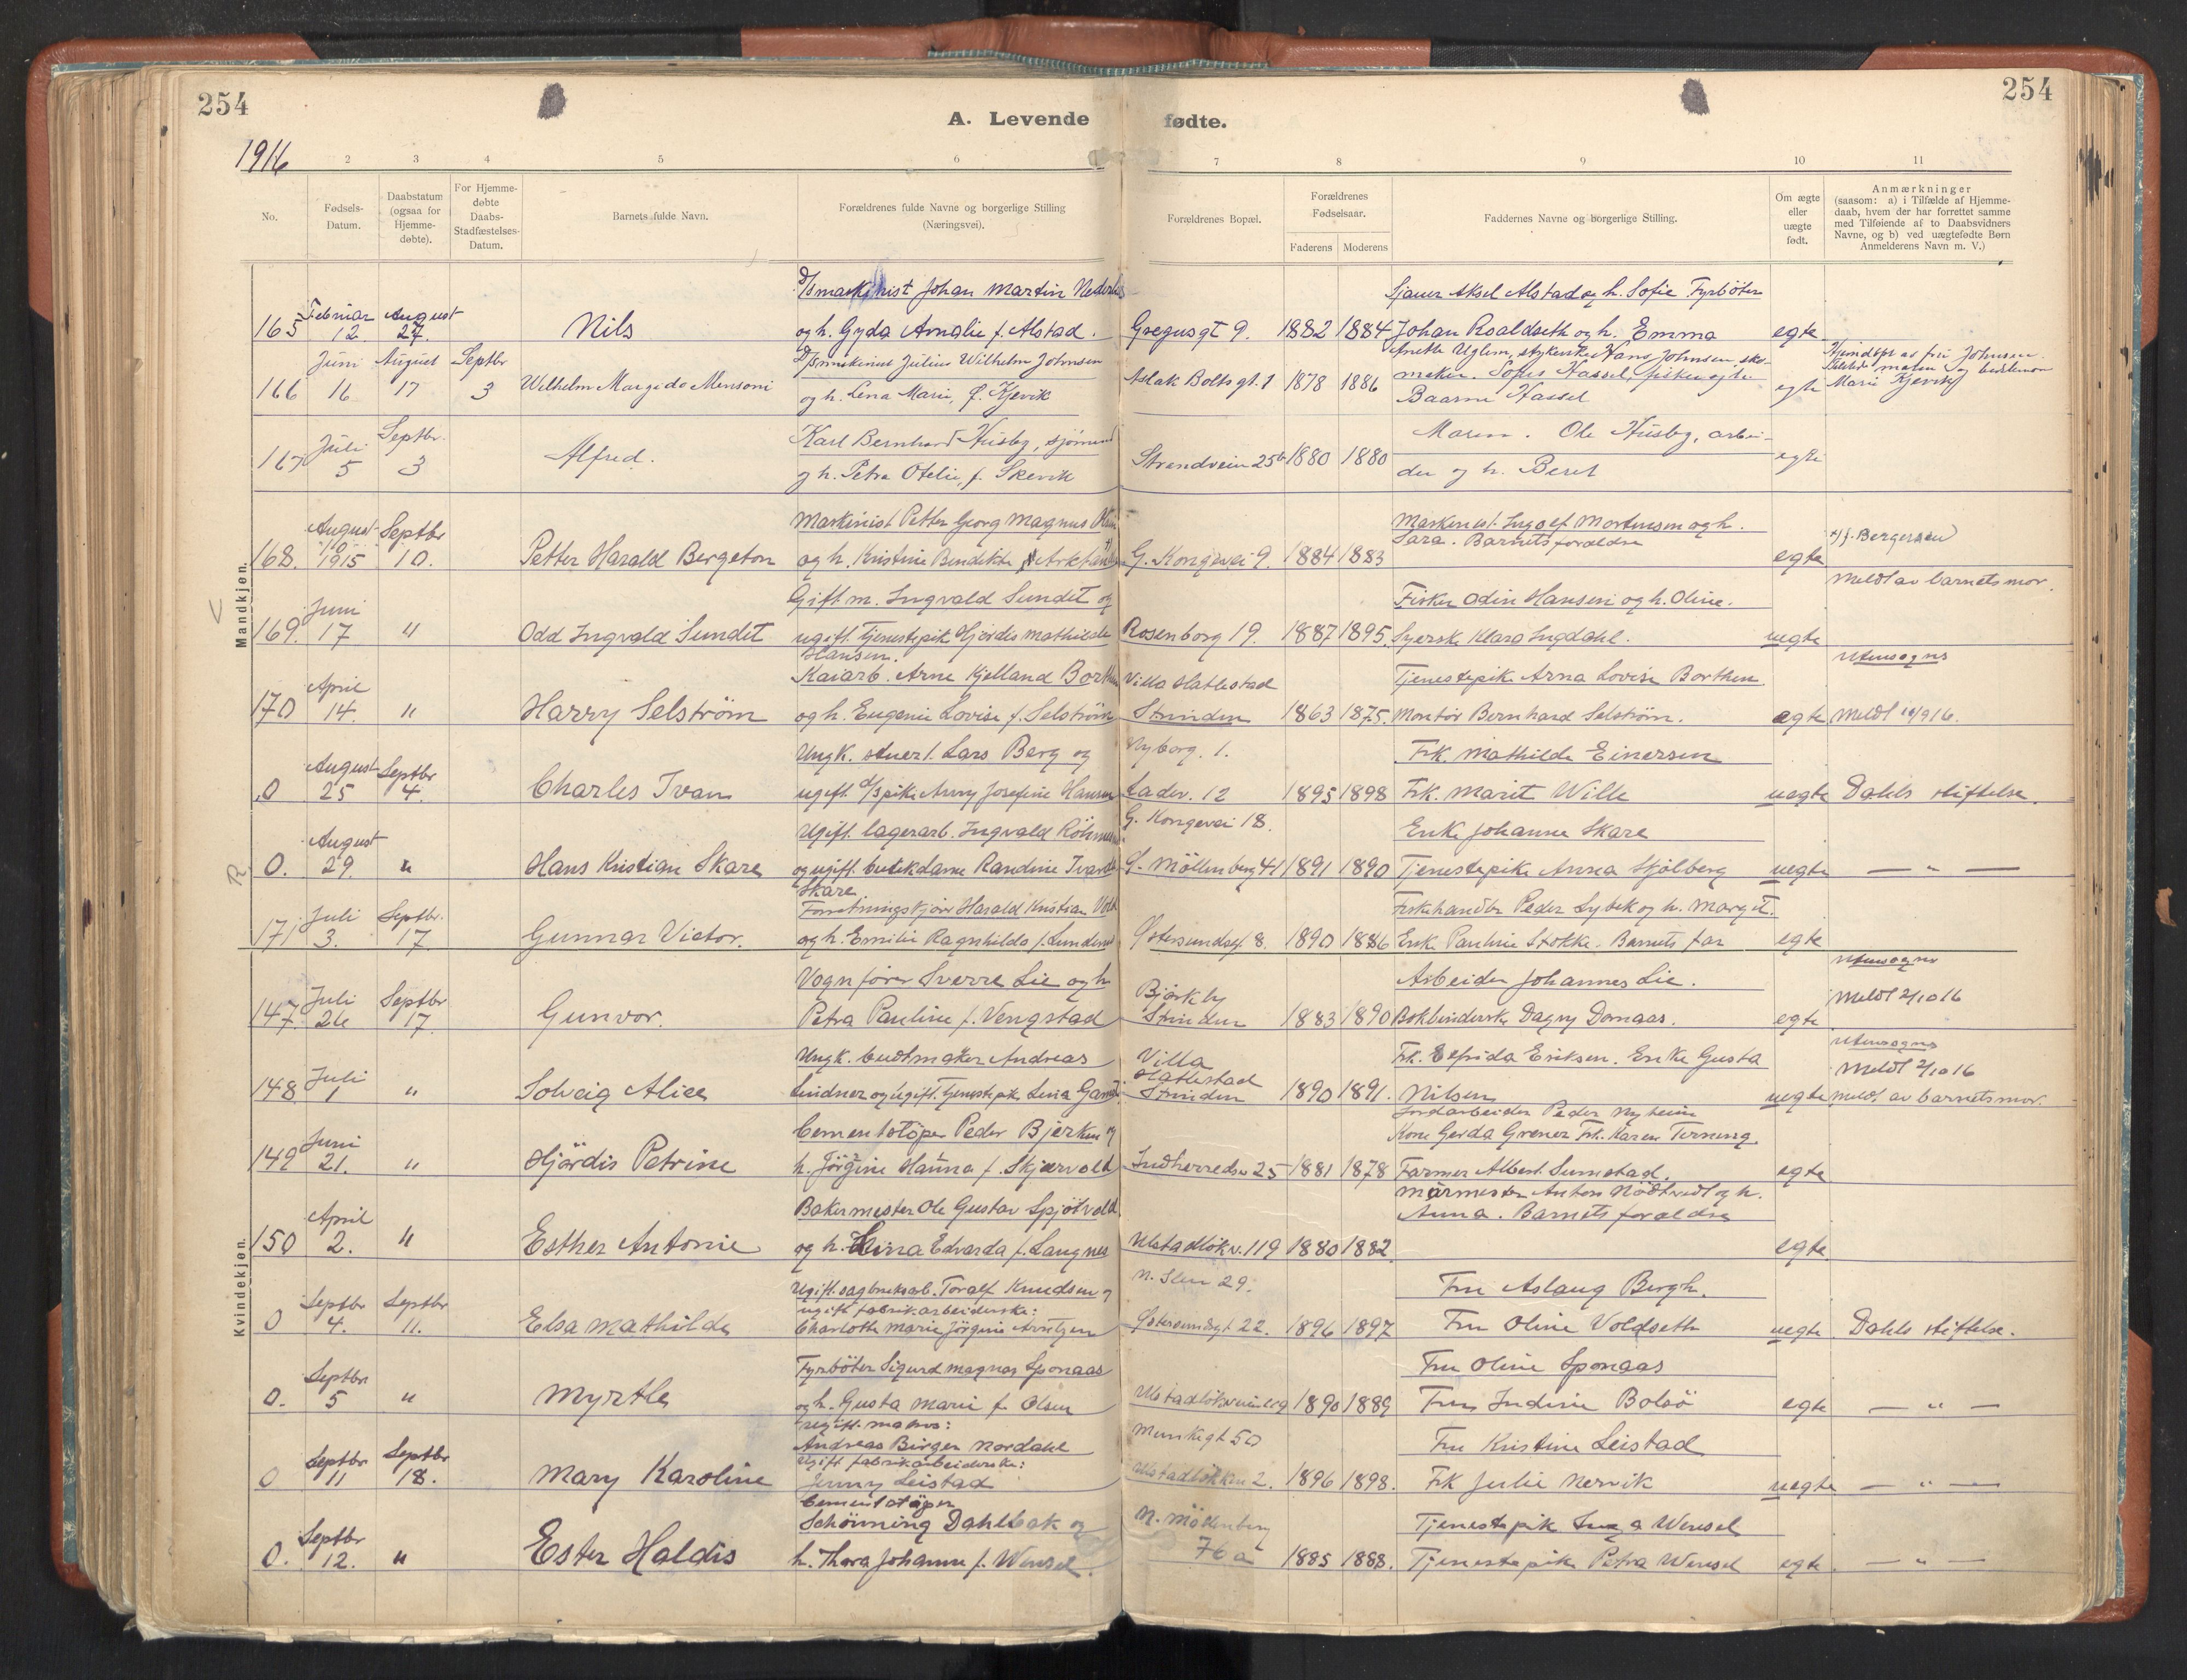 254
254
A. Levende fødte.
1916
2 3 4 5 6 7 8 9 10 11
No.
Fødsels-Datum.
Daabstatum (ogsaa for Hjemme-døbte).
For Hjemme-døbte Daabs-Stadfæstelses-Datum.
Barnets fulde Navn.
Forældrenes fulde Navne og borgerlige Stilling (Næringsvei).
Forældrenes Bopæl.
Forældrenes Fødselsaar.
Faderens Moderens
Faddernes Navne og borgerlige Stilling.
Om ægte eller uægte født.
Anmærkninger
(saasom: a) i Tilfælde af Hjemme-
daab, hvem der har forrettet samme
med Tilføiende af to Daabsvidners
Navne, og b) ved uægtefødte Børn
Anmelderens Navn m. V.)
Mandkjøn.
D/S maskinist Johan Martin Sjauer Aksel Alstad og h. Sofie Fyrbøter
165 Februar 12. August 27. Nils og h. Gyda Amalie f. Alstad. Gregusgt 9. 1882 1884 Johan Roaldseth og h. Emma egte
D/S maskinist Julius Wilhelm Johnsen Anette Uglem, strykerske Hans Johnsen, sko-
166 Juni 16 August 17 Septbr 3 Wilhelm Margido Mensoni og h. Lena Marie, f. Kjevik Aslak Bolts gt. 1 1878 1886 maker. Hassel, fisker og h. Baarni Hassel egte Hjemdøpt av fru Johnsen. Marie Kjevik
Karl Bernhard Husby, sjømand Moren. Ole Husby, arbei-
167 Juli 5 Septbr. 3 Alfred. og h. Petra Otelie, f. Skevik Strandveien 25b 1880 1880 der og h. Beret egte
Maskinist Petter Georg Magnus Maskinist Ingolf Mortensen og h.
168. August 10 1915 Septbr 10. Petter Harald Bergeton og h. Kristine Bendikte G. Kongevei 9. 1884 1883 Sara. Barnets forældre egte f. Bergersen
Gift m. Ingvald Sundet og Fisker Odin Hansen og h. Oline. Meldt av barnets mor.
169. Juni 17 " Odd Ingvald Sundet ugift. Tjenestepik Hjördis Mathilde Hansen. Rosenborg 19. 1887 1895. Syerske Klara Ingdahl. uegte
Kaiarb. Arne Kjelland Borthen Villa Hatlestad Tjenestepik Arna Lovise Borthen Utensogns
170 April 14. " Harry Selström og h. Eugenie Lovise f. Selström Strinden 1863 1875. Montör Bernhard Selström. egte Meldt 19/9 16.
Ungk. stuert. Lars Berg og Nyborg. 1. Frk. Mathilde Einersen
0 August 25 Septbr 4. Charles Ivan ugift. D/S pike Anny Josefine Hansen Ladev. 12 1895 1898 Frk. Marit Wille uegte Dahls stiftelse.
Ugift. lagerarb. Ingvald G. Kongevei 18. Enke Johanne Skare
R.
0. August 29. " Hans Kristian Skare og ugift. butikdame Randine Skare S. Möllenberg 41 1891 1890 Tjenestepik Anna Skjölberg uegte — " —
Forretningskjörer Harald Kristian Fiskehandler Peder Lybek og h. Margit.
171 Juli 3. Septbr. 17. Gunnar Victor. og h. Emilie Ragnhilda f. Östersundsgt. 8. 1890 1886 Enke Pauline Stokke. Barnets far egte
Kvindekjøn.
Vognfører Sverre Lie og h Bjørkby Arbeider Johannes Lie. Utensogns
147. Juli 26 Septbr 17. Gunvor. Petra Pauline f. Vengstad Strinden 1883 1890 Bokbinderske Dagny Domaas. egte Meldt 2/10 16
Ungk. budtmaker Andreas Villa Hatlestad Frk. Elfrida Eriksen. Enke Gusta Utensogns Meldt 2/10 16
148 Juli 1 " Solveig Alice Lindner og ugift. Tjenestepik Strinden 1890 1891. Nilsen uegte Meldt av barnets mor.
Cementstøper Peder Bjerken og Jordarbeider Peder Nyheim Kone Gerda Grener Frk. Karen Terning.
149 Juni 21. " Hjördis Petrine h. Jörgine Hanna f. Skjærvold Indherredsv 25 1881 1878 Farmer Albert Sumstad. egte
Bakermester Ole Gustav Spjøtvold Murmester Anton Nödtvedt og h. Anna. Barnets forældre
150 April 2. " Esther Antonie og h. Lina Edvarda f. Langnes Ulstadløkv. 119 1880 1882 egte
Ugift. sagbruksarb. Toralf Knudsen og N. Ilen 29. Fru Aslaug Bergh.
0 Septbr 4. Septbr 11. Elsa Mathilde ugift fabrikarbeiderske: Charlotte Marie Jörgine Arntzen Östersundsgt 22. 1896 1897 Fru Oline Voldseth uegte Dahls stiftelse.
Fyrböter Sigurd Magnar Sponaas Fru Oline Sponaas
0. Septbr 5 " Myrthe og h. Gusta Marie f. Olsen 1890 1889 Fru Indine Bolsö egte — " —
Ugift. matros: Andreas Birger Nordahl Munkegt 50 Fru Kristine Leistad
0 Septbr 11 Septbr 18. Mary Karoline Ugift fabrikarbeiderske: Jenny Leistad Ulstadløkken 2. 1896 1898. Frk Julie Nervik uegte — " —
Cementstøper Schönning Dahlbak og N. Möllenberg Tjenestepik Inga Wensel
0. Septbr 12. " Ester Haldis h. Thora Johanne f. Wensel. 76 a 1885 1888. Tjenestepik Petra Wensel egte — " —